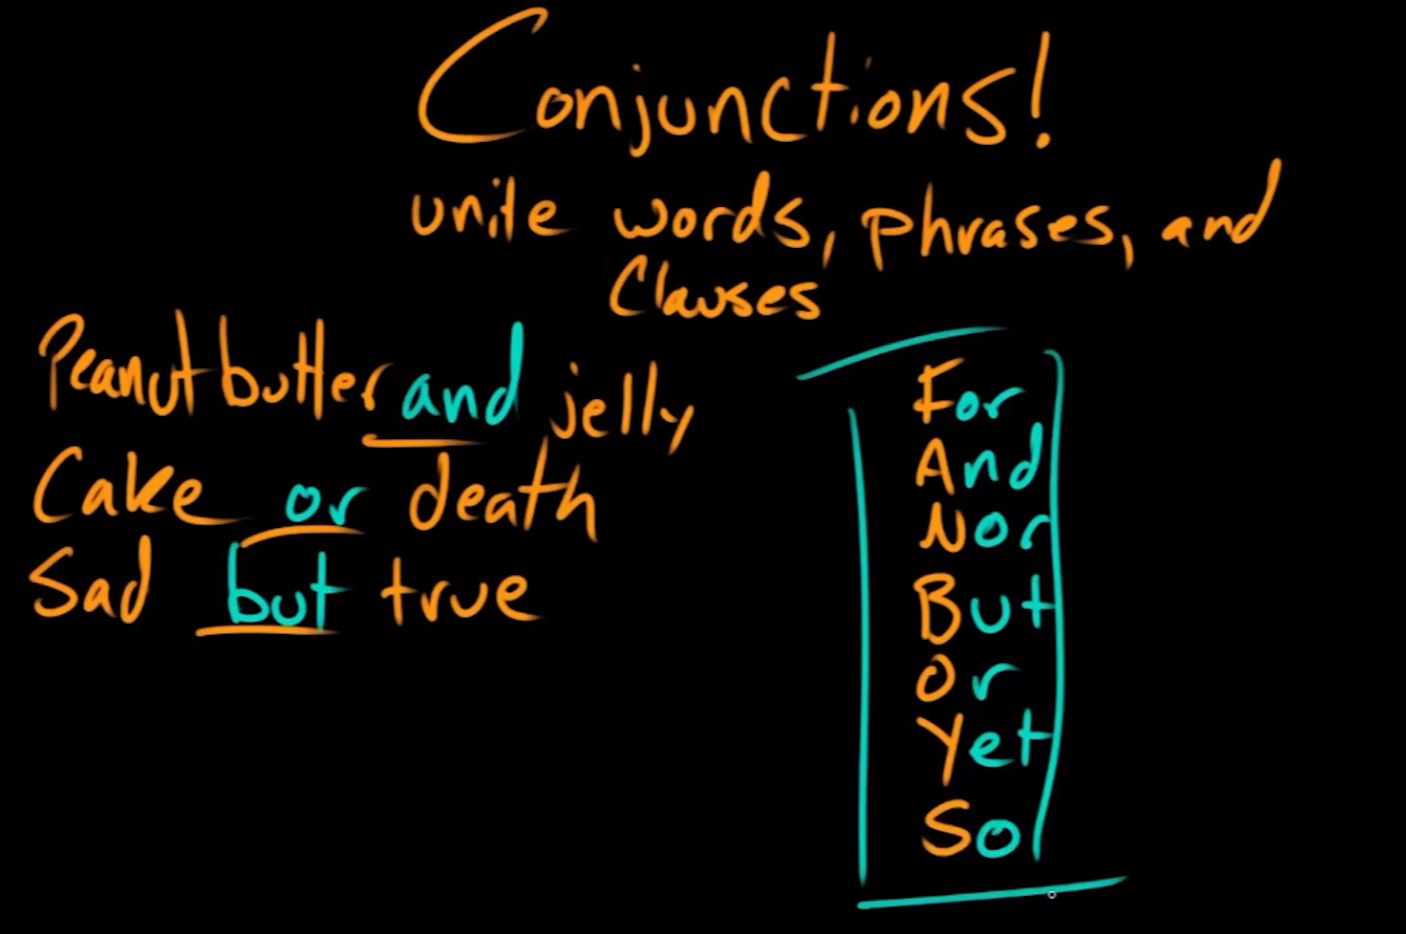 Conjunctions!
unite words, phrases, and
Clauses
Peanut butter and jelly
Cake or death
Sad but true
For
And
Nor
But
Or
Yet
So